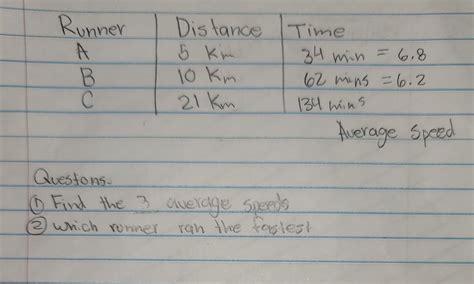 Runner Distance Time
A 5 Km 34 min = 6.8
B 10 Km 62 mins = 6.2
C 21 Km 134 mins
Average Speed
Questons-
① Find the 3 average speeds
② which runner ran the fastest